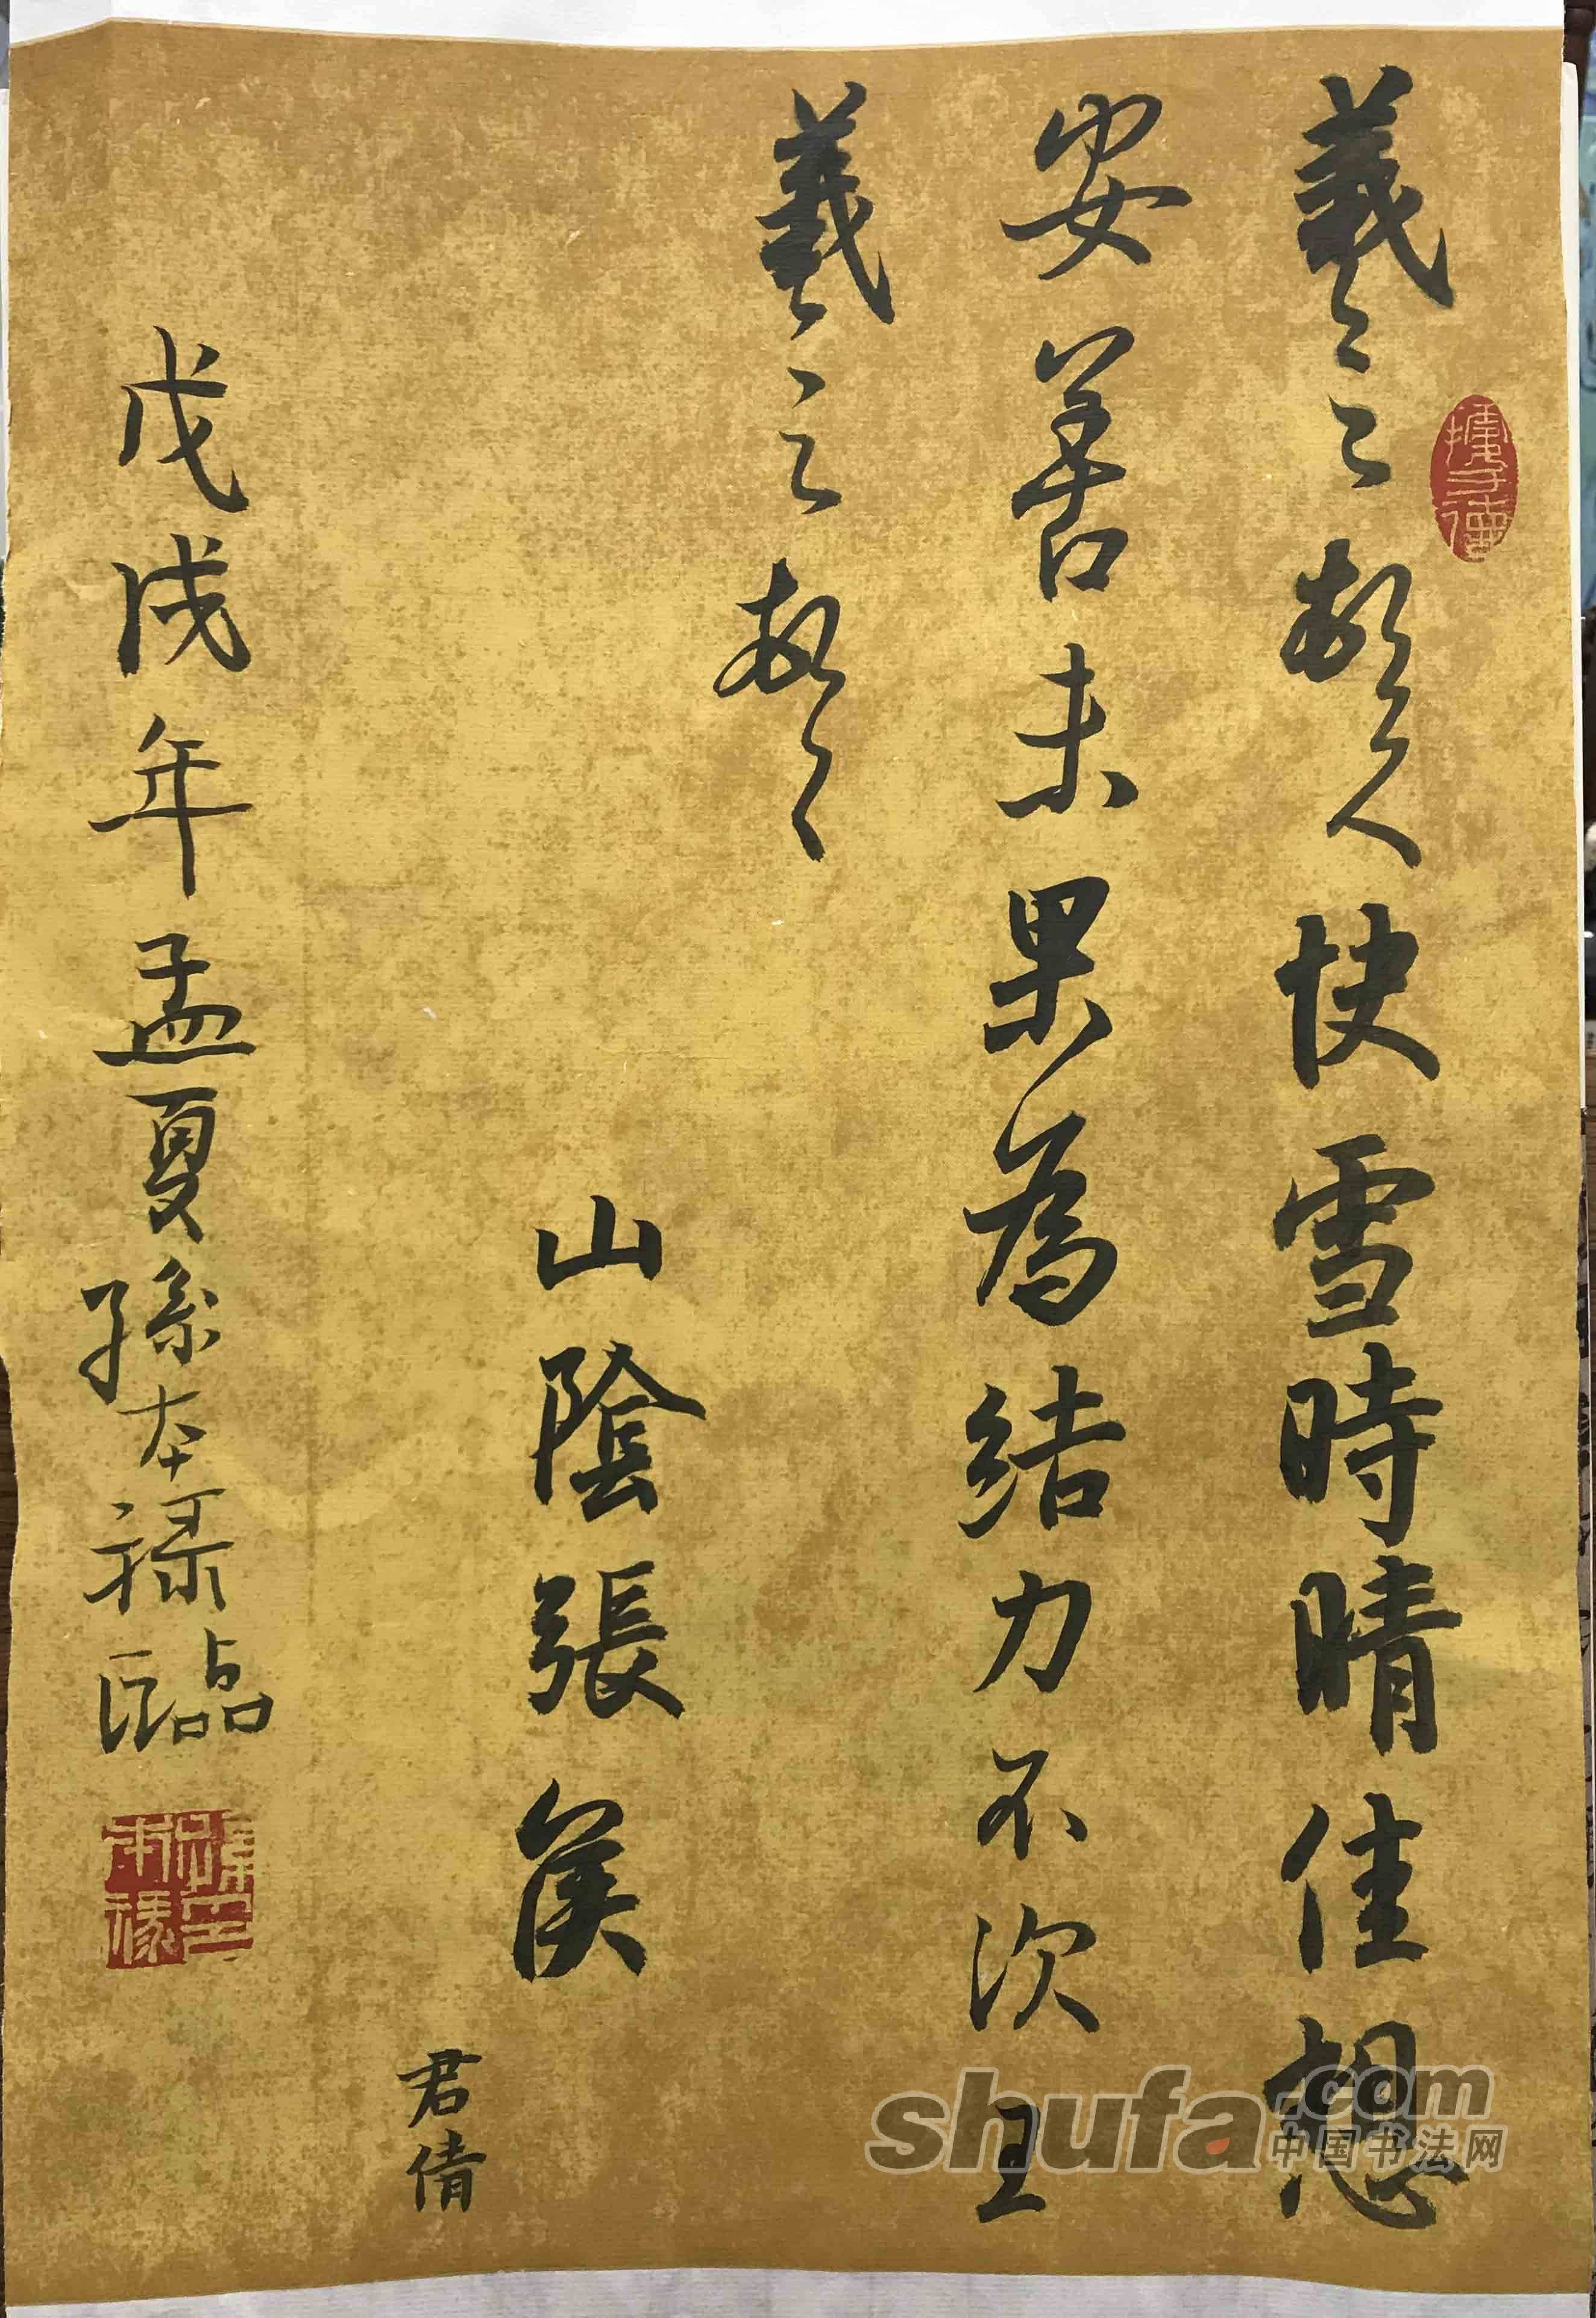 羲之頓首快雪時晴佳想
安善未果為結力不次王
羲之頓首
山陰張侯
君倩
戊戌年孟夏孫本祿臨
孫本祿印
shufa.com
中国书法网